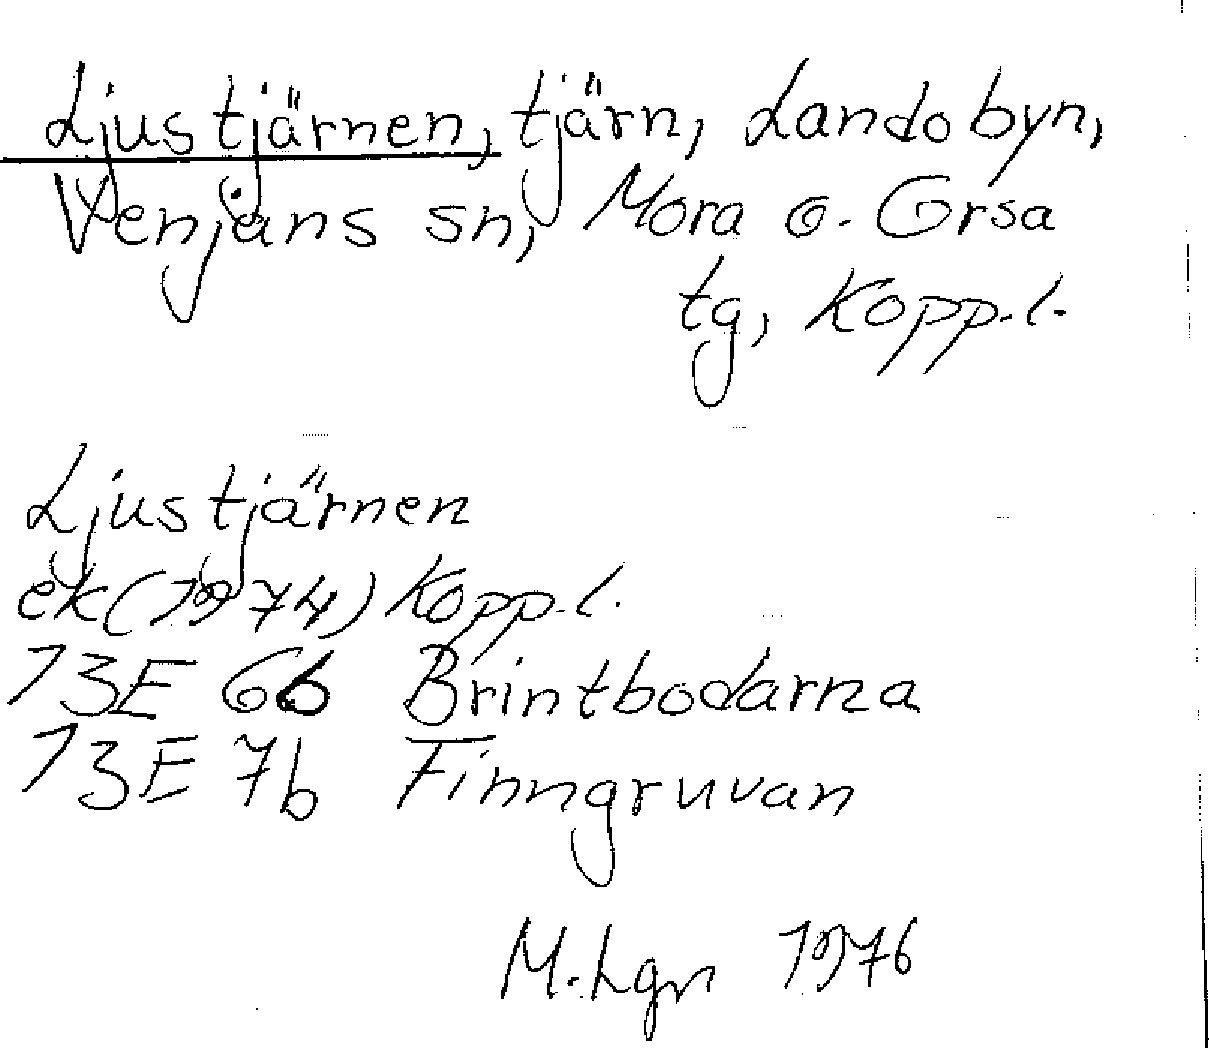 Ljustjärnen, tjärn, Landobyn,
Venjans sn, Mora o. Orsa
tg, Kopp.l.
Ljustjärnen
ek(1974) Kopp.l.
13E 6b Brintbodarna
13E 7b Finngruvan
M.Lgn 1976